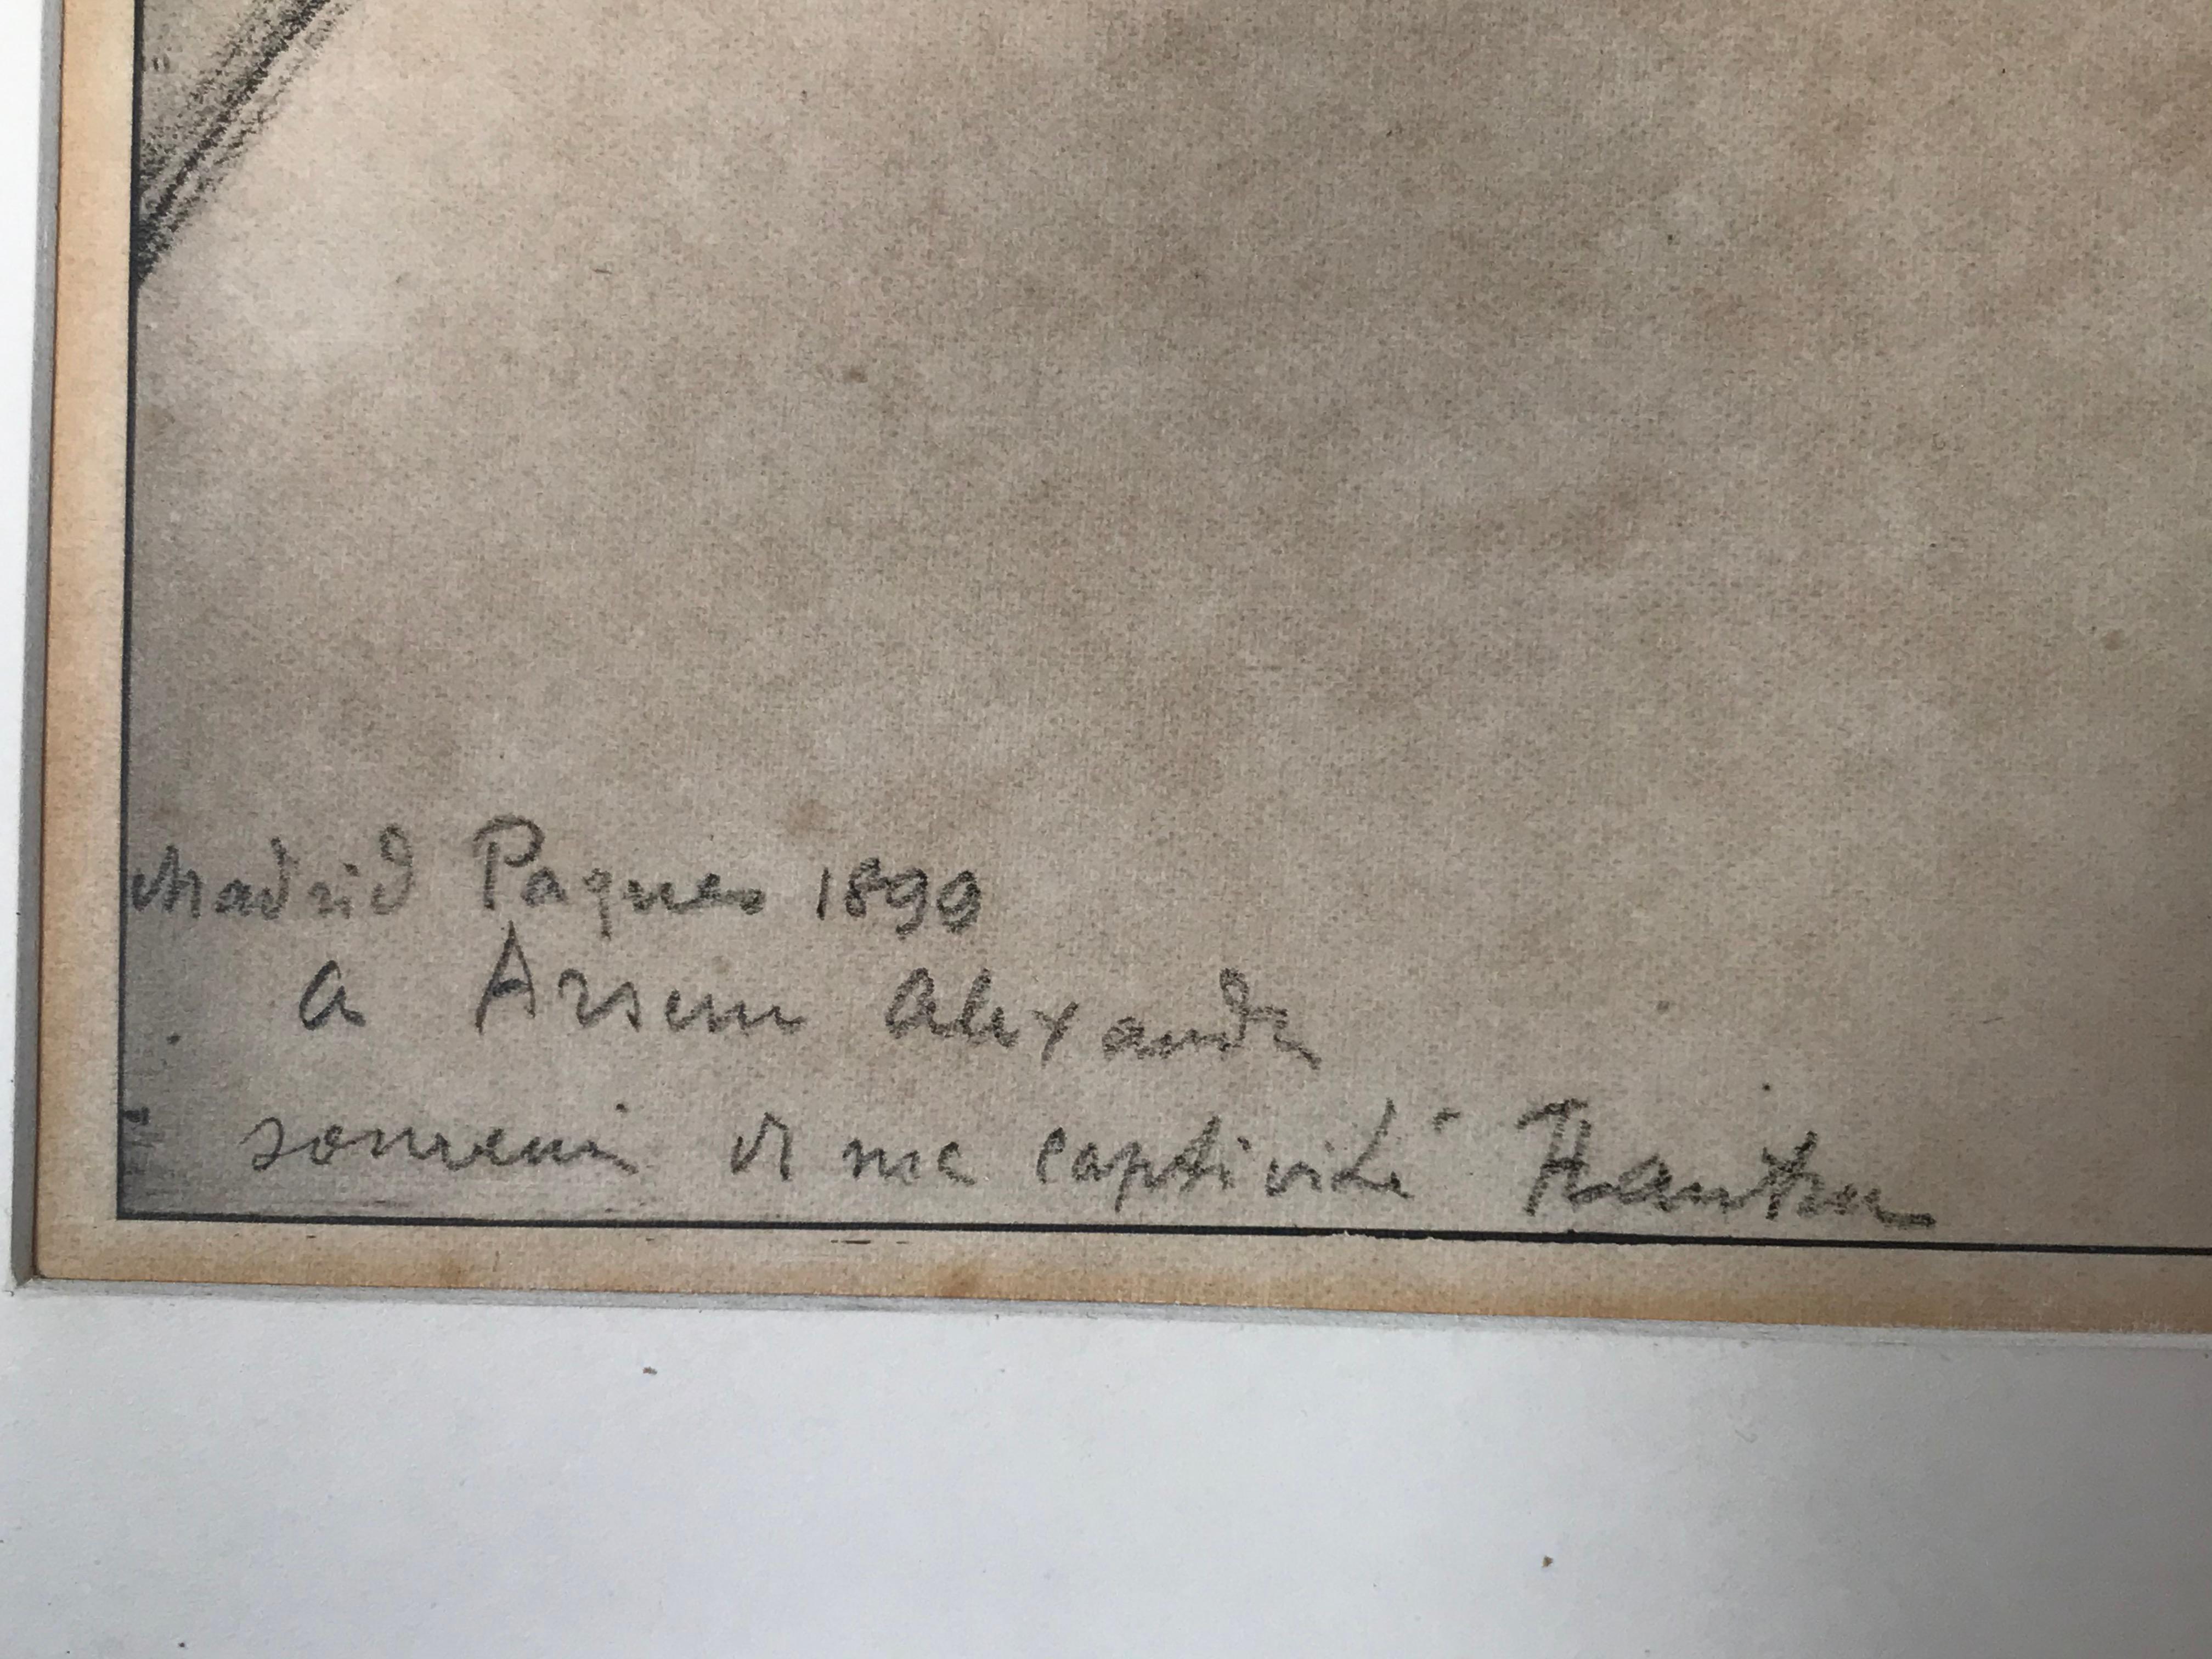 Madrid Paques 1899
a Arsene Alexandre
souvenir de ma captivité HLautrec